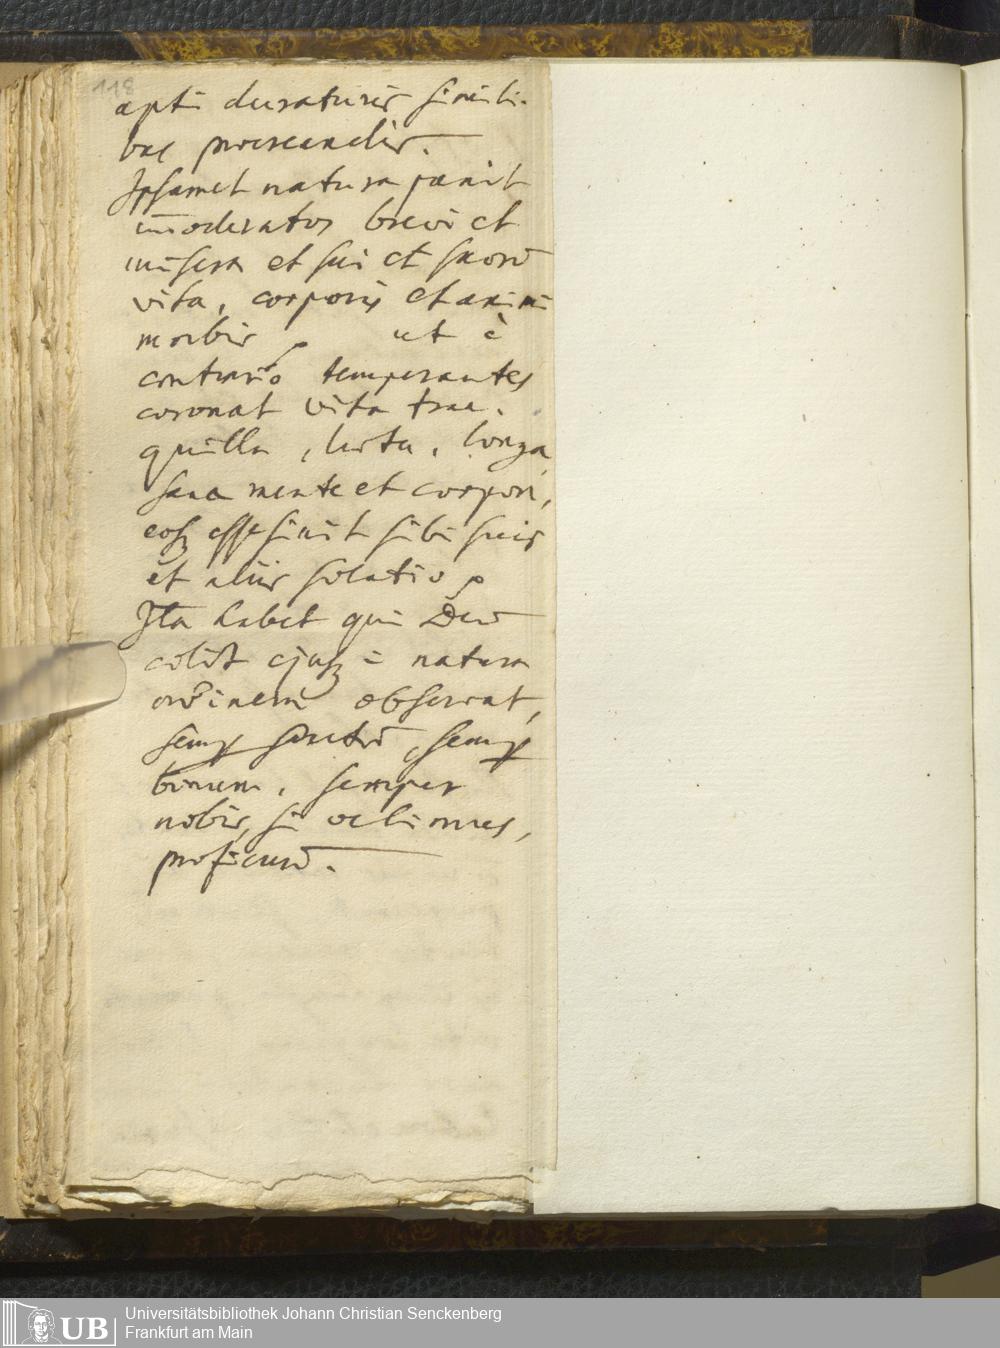 118
apti duraturis simili-
bus procreandis.
Ipsamet natura punit
im̄oderatos brevi et
misera et sui et suorū
vita, corporis et animi
morbis ut è
contrario temperantes
coronat vita tran-
quilla, læta, longa,
sana mente et corpore,
eosq esse sinit sibi suis
et aliis solatio
Ita habet qui Deū
colit ejusq in natura
ordinem observat,
semp sanctū, semp
bonum, semper
nobis, si velimus,
proficuū.
UB
Universitätsbibliothek Johann Christian Senckenberg
Frankfurt am Main